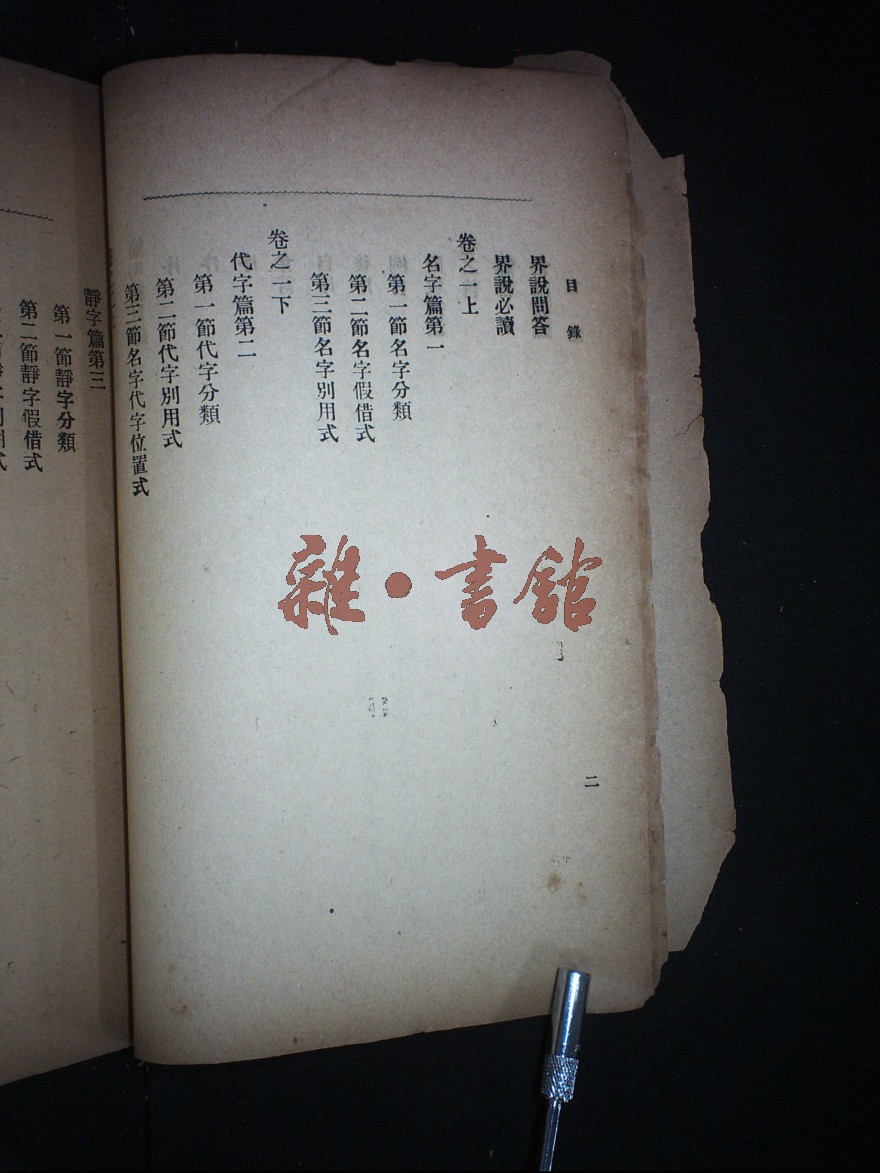 目錄
界說問答
界說必讀
卷之一上
名字篇第一
第一節名字分類
第二節名字假借式
第三節名字別用式
卷之一下
代字篇第二
第一節代字分類
第二節代字別用式
第三節名字代字位置式
二
靜字篇第三
第一節靜字分類
第二節靜字假借式
雜·書館